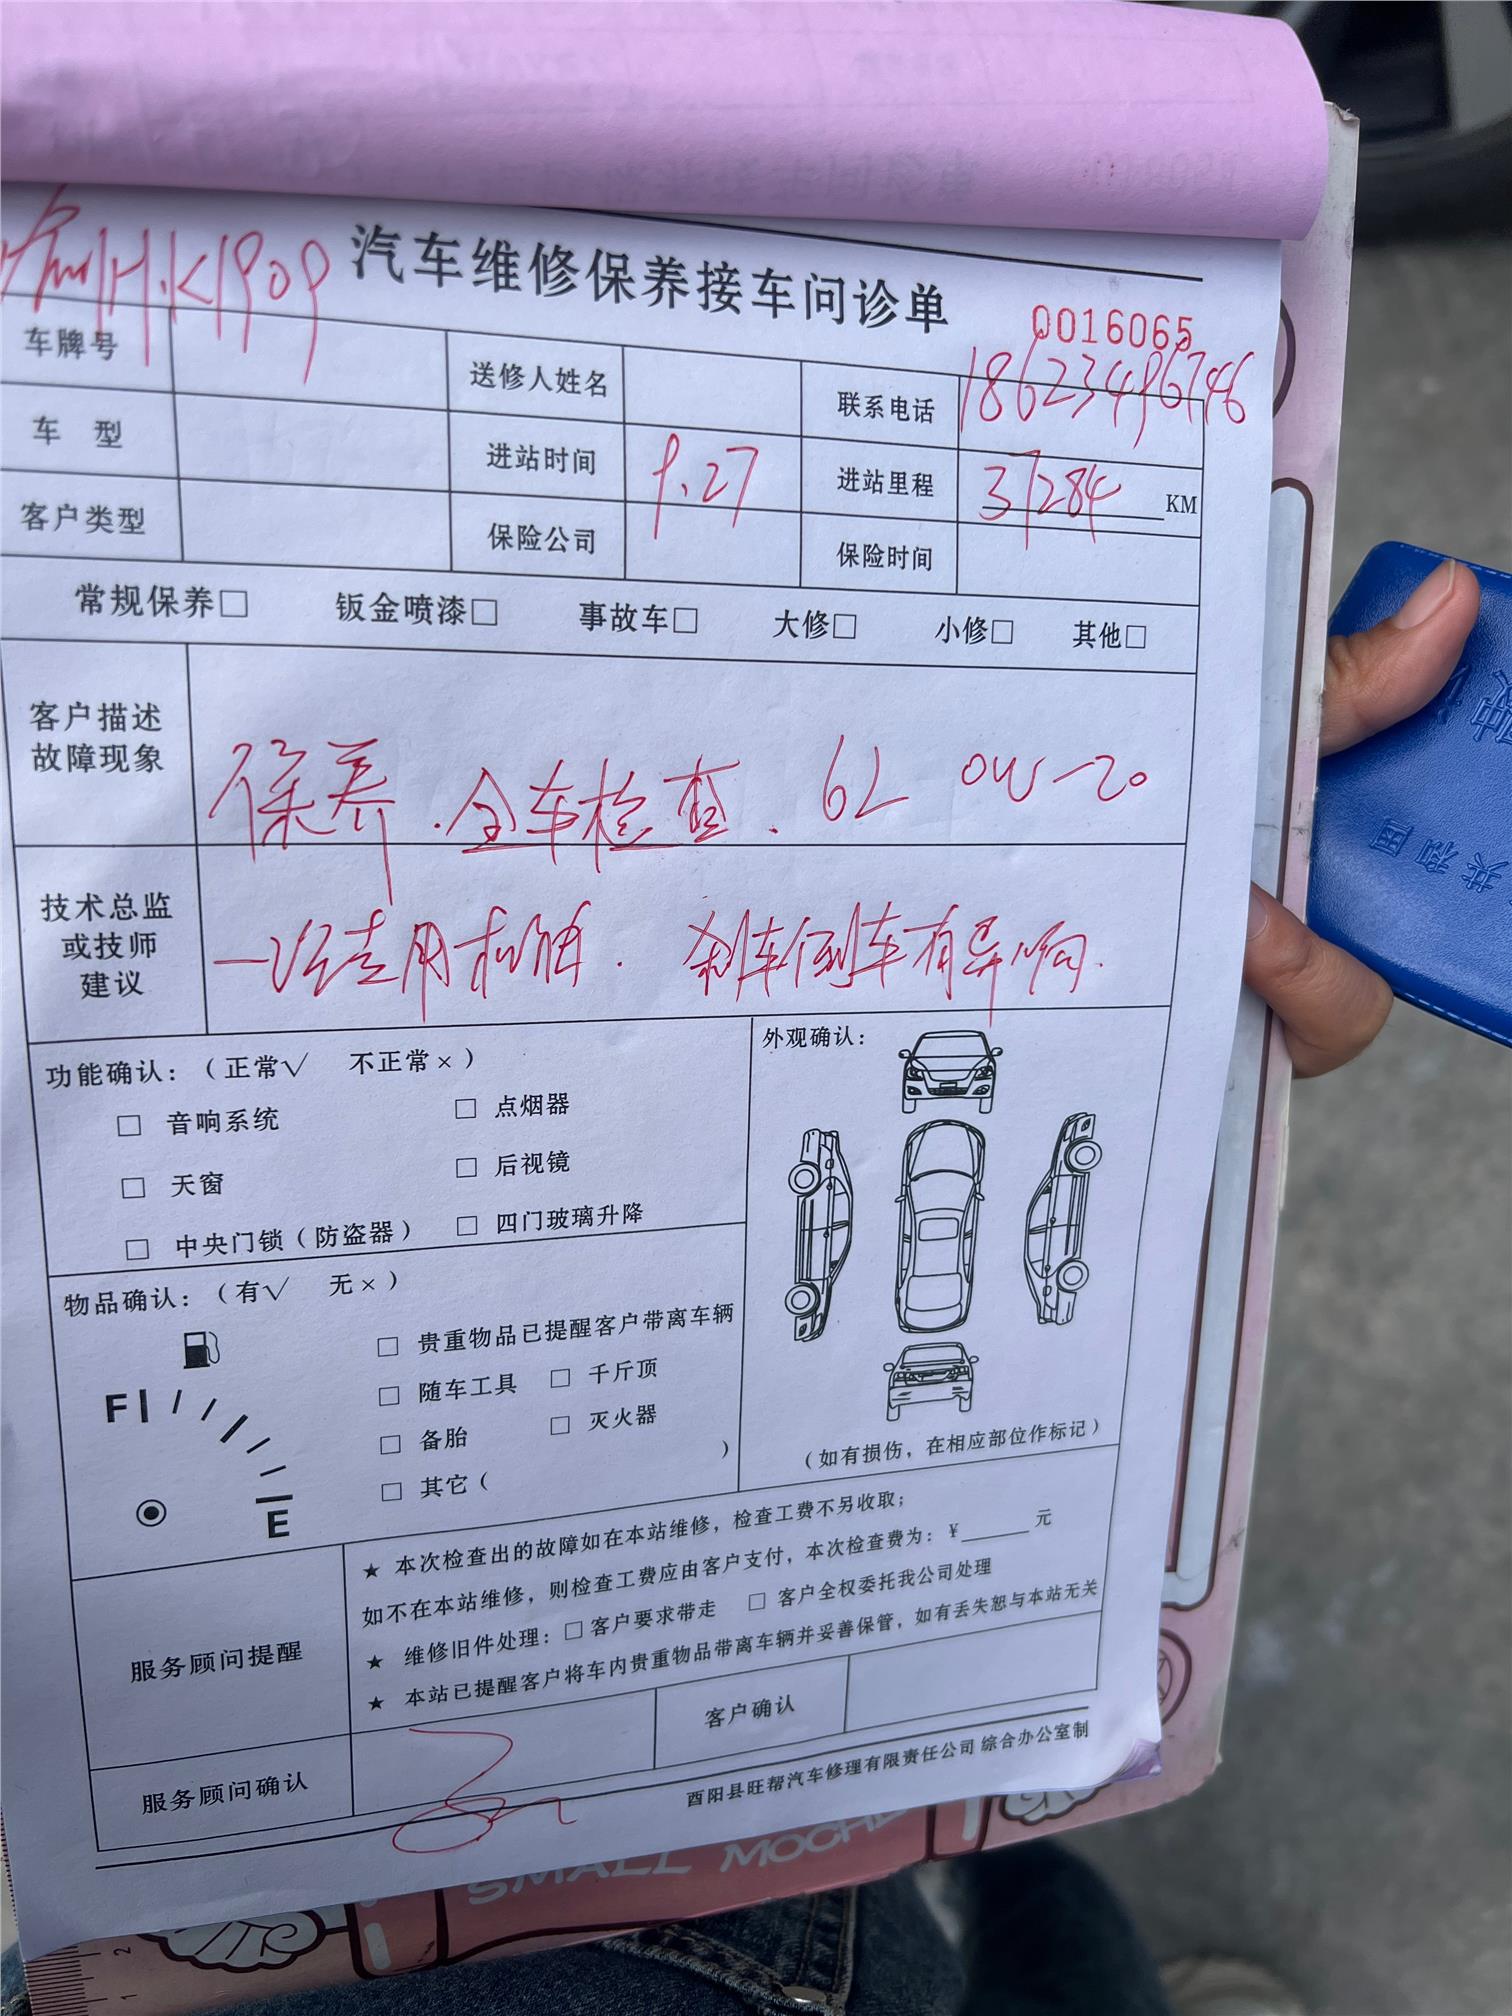 渝H·K1909
汽车维修保养接车问诊单
0016065
车牌号 送修人姓名 联系电话 18623496746
车 型 进站时间 9.27 进站里程 37284 KM
客户类型 保险公司 保险时间
常规保养□ 钣金喷漆□ 事故车□ 大修□ 小修□ 其他□
客户描述
故障现象
保养.全车检查. 6L 0W-20
技术总监
或技师
建议
一汽专用机油. 刹车倒车有异响.
功能确认：（正常√ 不正常×）
□ 音响系统 □ 点烟器
□ 天窗 □ 后视镜
□ 中央门锁（防盗器） □ 四门玻璃升降
外观确认：
（如有损伤，在相应部位作标记）
物品确认：（有√ 无×）
F
E
□ 贵重物品已提醒客户带离车辆
□ 随车工具 □ 千斤顶
□ 备胎 □ 灭火器
□ 其它（ ）
服务顾问提醒
★ 本次检查出的故障如在本站维修，检查工费不另收取；
如不在本站维修，则检查工费应由客户支付，本次检查费为：¥______元
★ 维修旧件处理：□客户要求带走 □ 客户全权委托我公司处理
★ 本站已提醒客户将车内贵重物品带离车辆并妥善保管，如有丢失恕与本站无关
服务顾问确认 客户确认
酉阳县旺帮汽车修理有限责任公司 综合办公室制
SMALL
共和国